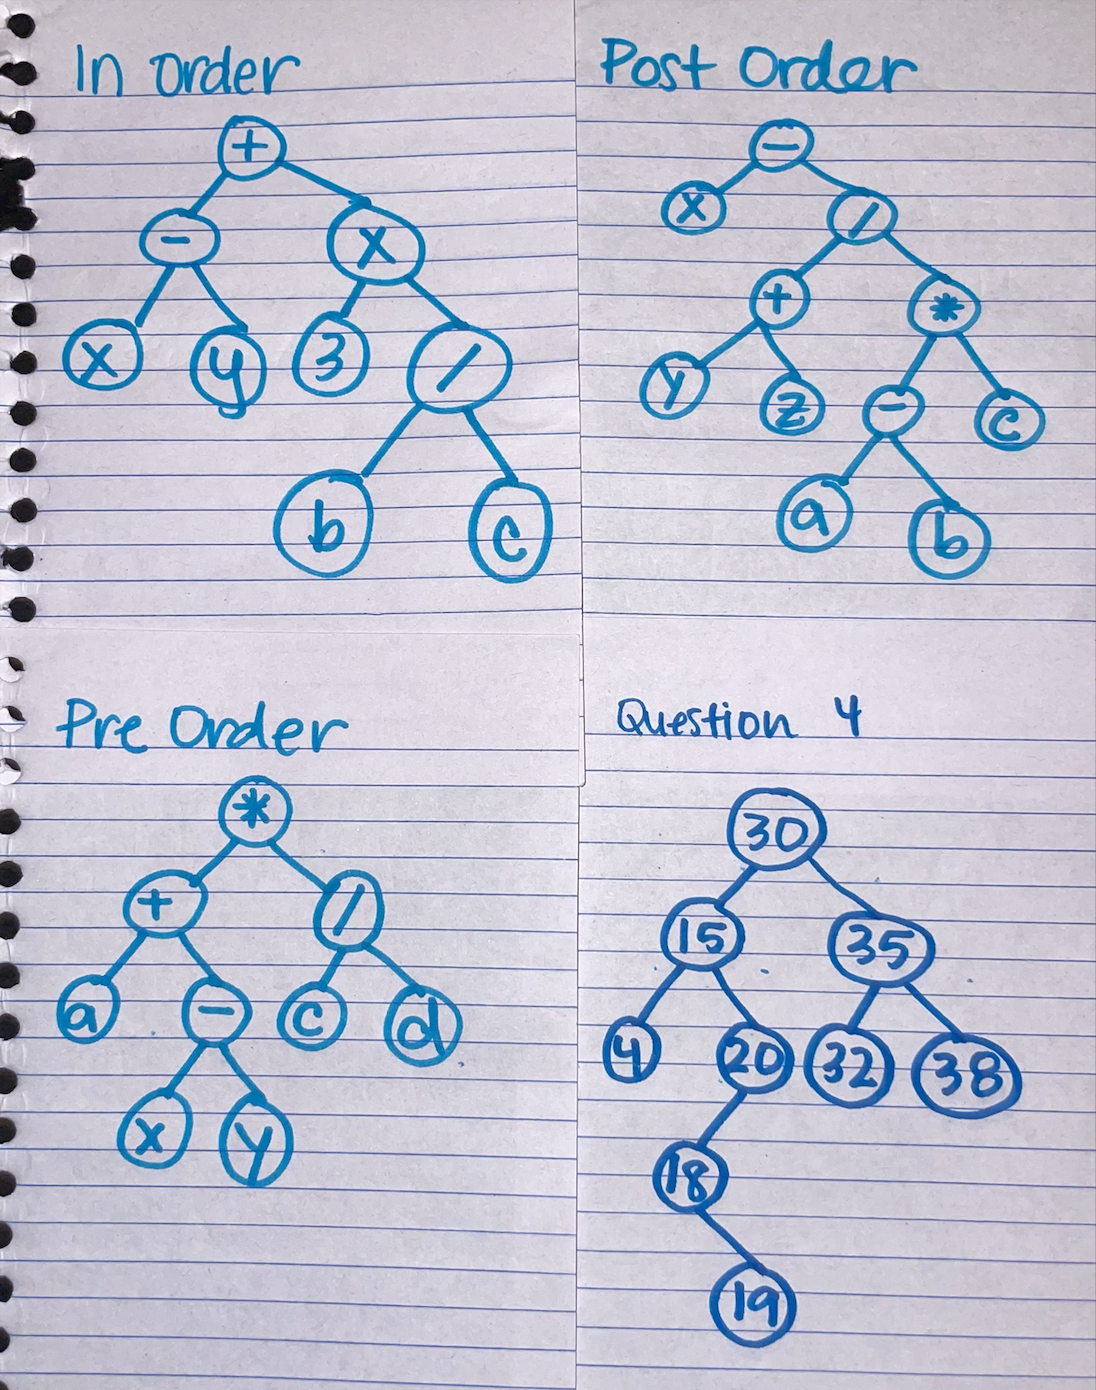 In Order
+
- x
x y 3 /
b c
Post Order
-
x /
+ *
y z - c
a b
Pre Order
*
+ /
a - c d
x y
Question 4
30
15 35
4 20 32 38
18
19